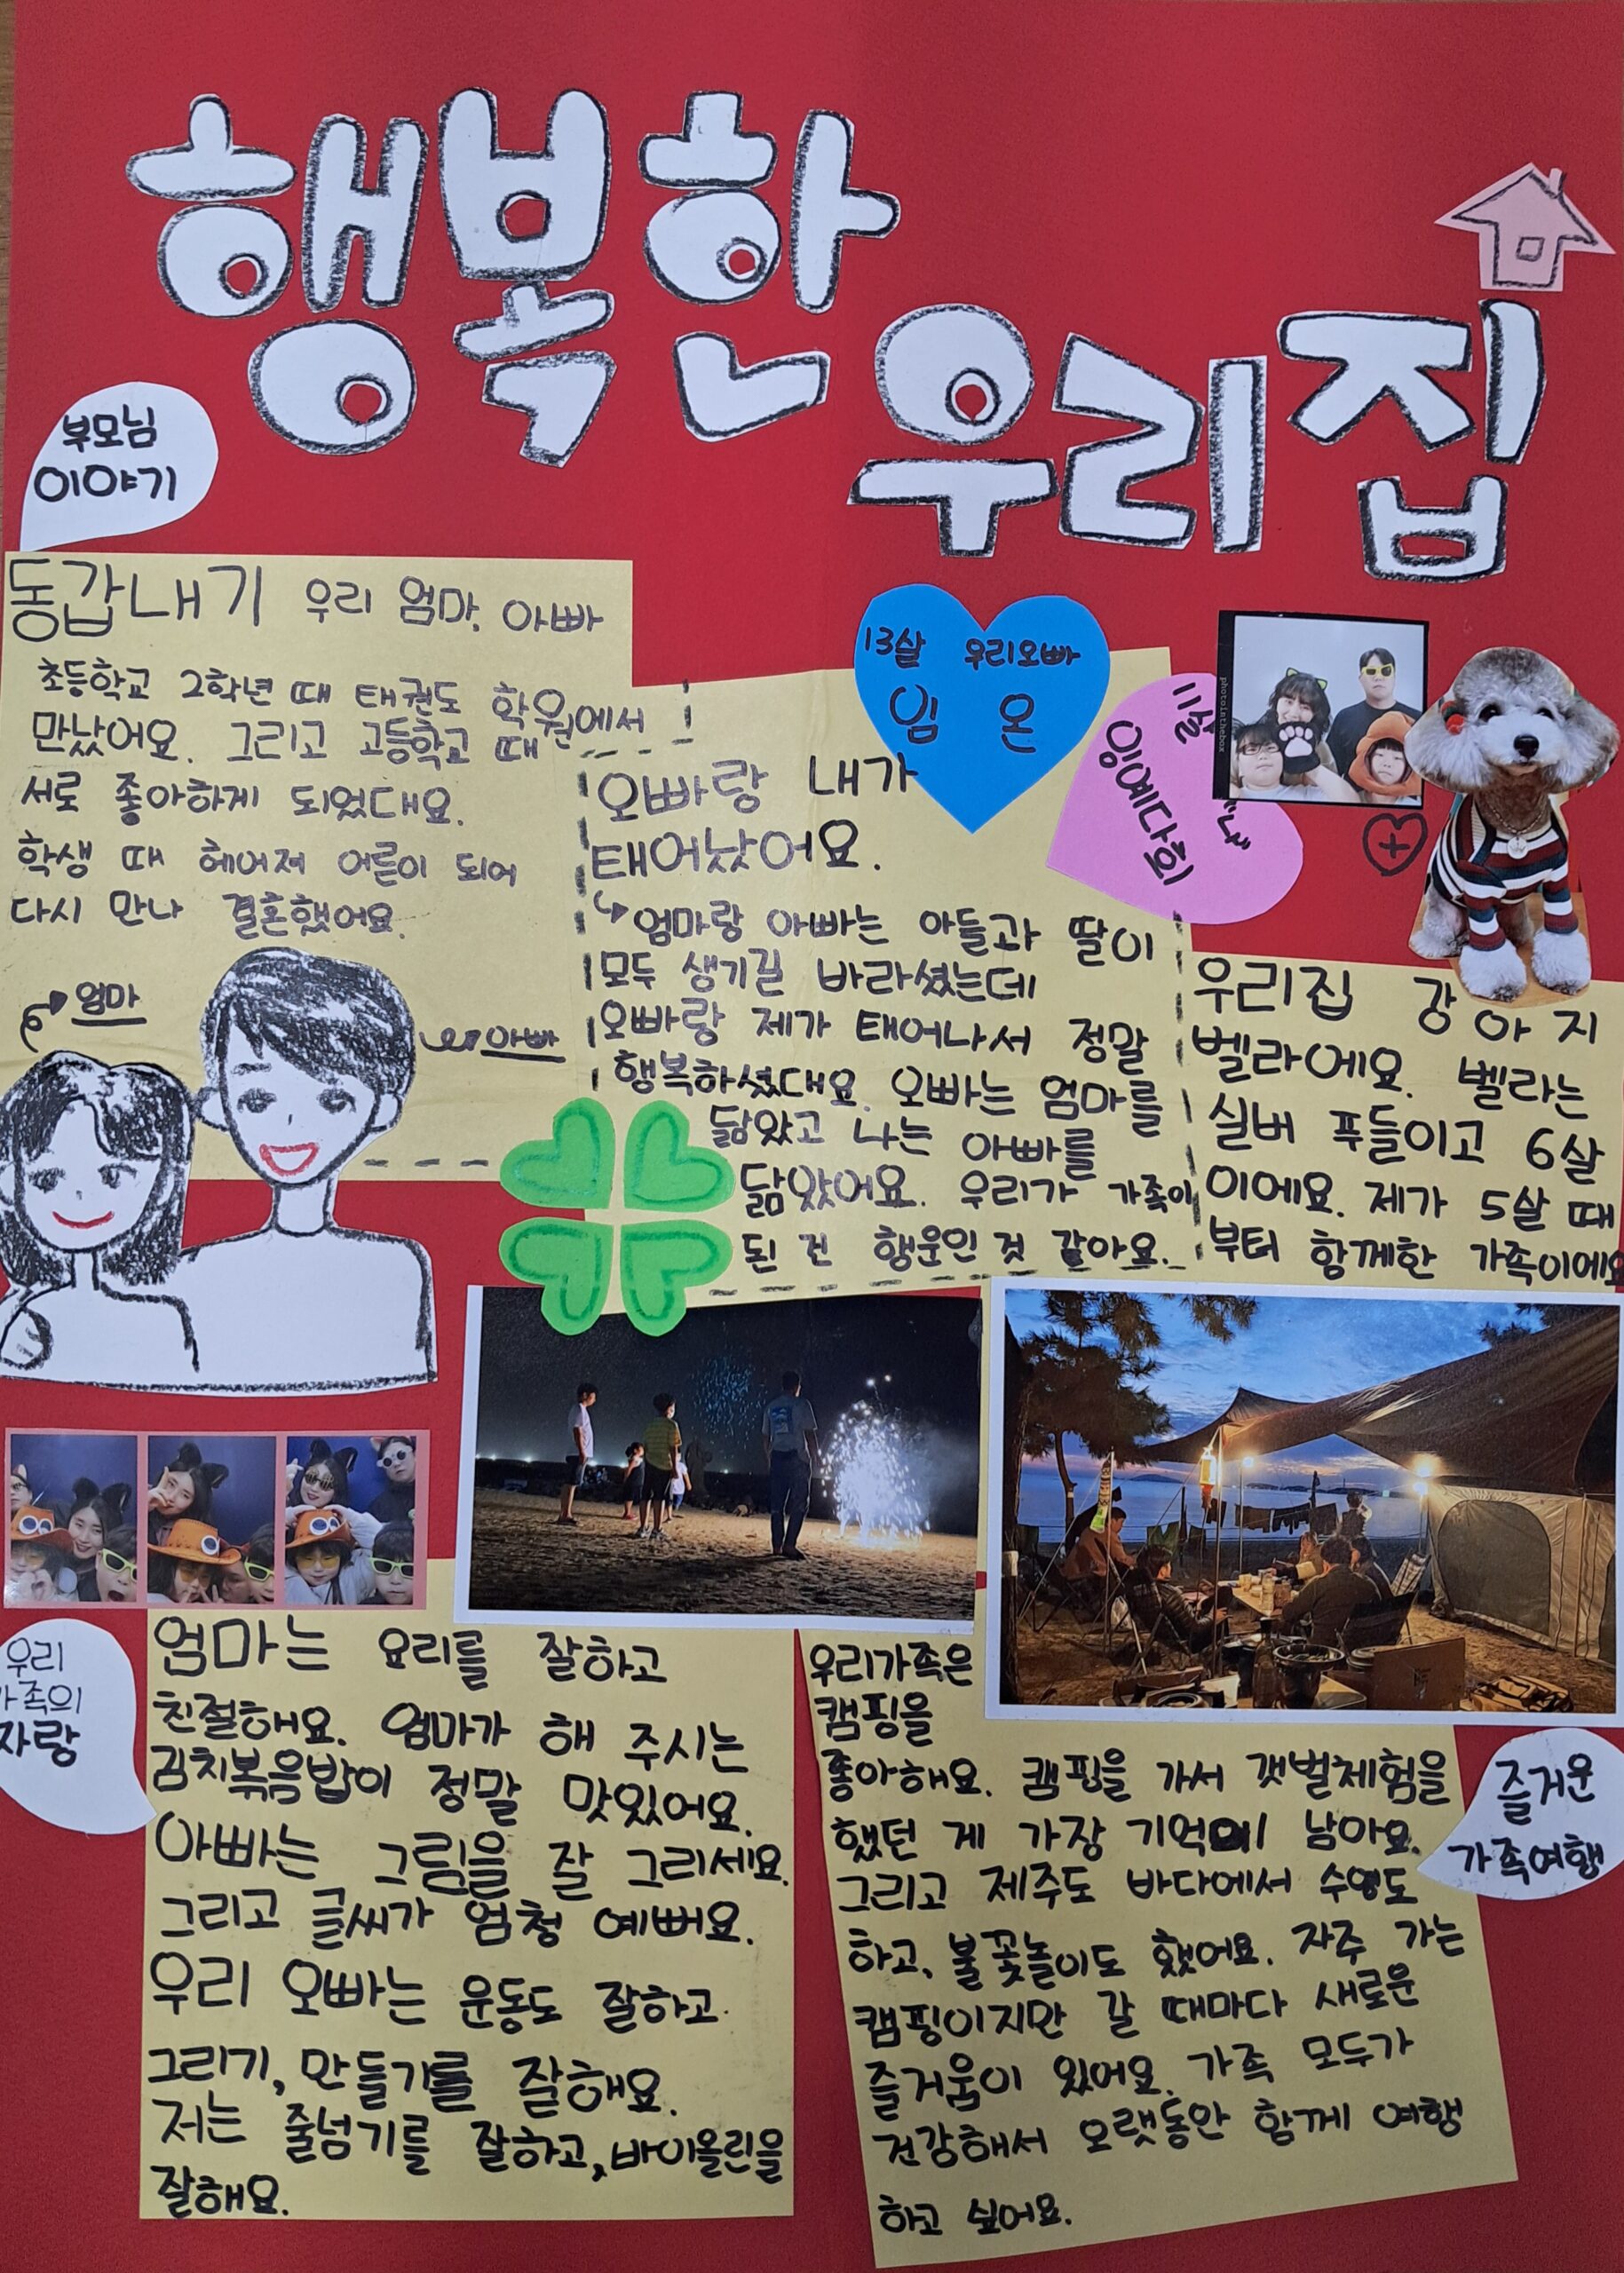 행복한
우리집
부모님
이야기
동갑내기 우리 엄마, 아빠
초등학교 2학년 때 태권도 학원에서
만났어요. 그리고 고등학교 때
서로 좋아하게 되었대요.
학생 때 헤어져 어른이 되어
다시 만나 결혼했어요.
엄마
아빠
13살 우리오빠
임 온
11살 "나"
임예다희
photointhebox
오빠랑 내가
태어났어요.
엄마랑 아빠는 아들과 딸이
모두 생기길 바라셨는데
오빠랑 제가 태어나서 정말
행복하셨대요. 오빠는 엄마를
닮았고 나는 아빠를
닮았어요. 우리가 가족이
된 건 행운인 것 같아요.
우리집 강아지
벨라에요. 벨라는
실버 푸들이고 6살
이에요. 제가 5살 때
부터 함께한 가족이에요
우리
가족의
자랑
엄마는 요리를 잘하고
친절해요. 엄마가 해 주시는
김치볶음밥이 정말 맛있어요.
아빠는 그림을 잘 그리세요.
그리고 글씨가 엄청 예뻐요.
우리 오빠는 운동도 잘하고
그리기, 만들기를 잘해요.
저는 줄넘기를 잘하고, 바이올린을
잘해요.
즐거운
가족여행
우리가족은
캠핑을
좋아해요. 캠핑을 가서 갯벌체험을
했던 게 가장 기억에 남아요.
그리고 제주도 바다에서 수영도
하고, 불꽃놀이도 했어요. 자주 가는
캠핑이지만 갈 때마다 새로운
즐거움이 있어요. 가족 모두가
건강해서 오랫동안 함께 여행
하고 싶어요.